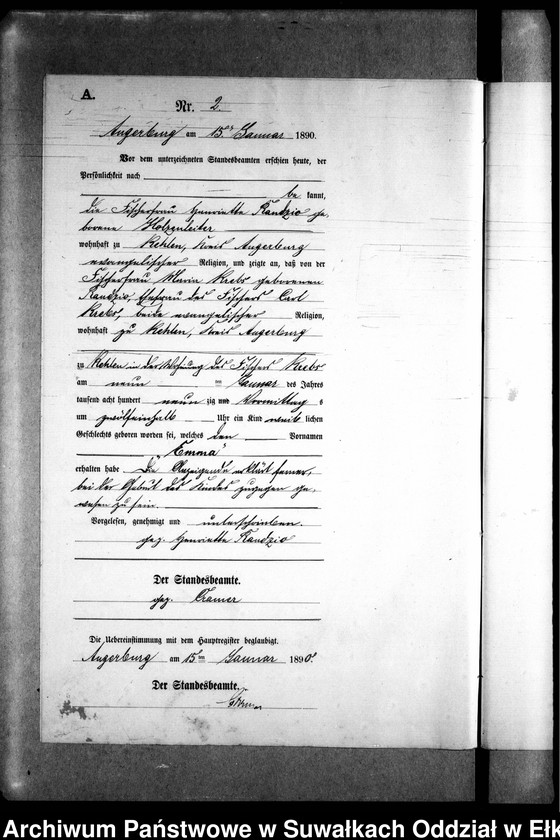 A.
Nr. 2.
Angerburg am 15ten Januar 1890.
Vor dem unterzeichneten Standesbeamten erschien heute, der
Persönlichkeit nach
be kannt,
die Fischerfrau Henriette Randzio ge
borene Holzenleiter
wohnhaft zu Kehlen, Kreis Angerburg
evangelischer Religion, und zeigte an, daß von der
Fischerfrau Maria Krebs geborenen
Randzio, Ehefrau des Fischers Carl
Krebs, beide evangelischer Religion,
wohnhaft zu Kehlen, Kreis Angerburg
zu Kehlen in der Wohnung des Fischers Krebs
am neun ten Januar des Jahres
tausend acht hundert neun zig und Vormittag s
um zwölfeinhalb Uhr ein Kind weib lichen
Geschlechts geboren worden sei, welches den Vornamen
"Emma"
erhalten habe. Die Anzeigende erklärt ferner,
bei der Geburt des Kindes zugegen ge-
wesen zu sein.
Vorgelesen, genehmigt und unterschrieben.
gez. Henriette Randzio
Der Standesbeamte.
gez. Cramer
Die Uebereinstimmung mit dem Hauptregister beglaubigt.
Angerburg am 15ten Januar 1890.
Der Standesbeamte.
Archiwum Państwowe w Suwałkach Oddział w Ełk